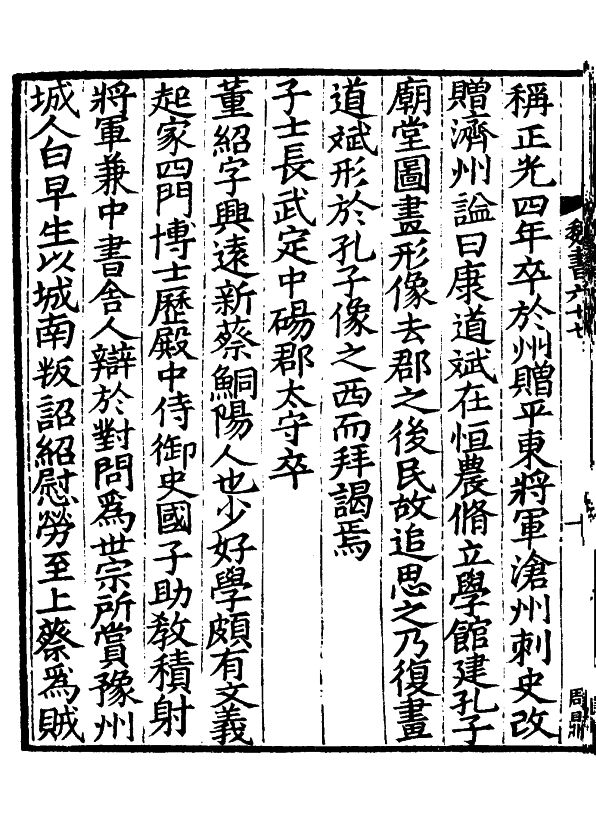 稱正光四年卒於州贈平東將軍滄州刺史改
贈濟州謚曰康道斌在恒農脩立學館建孔子
廟堂圖畫形像去郡之後民故追思之乃復畫
道斌形於孔子像之西而拜謁焉
子士長武定中碭郡太守卒
董紹字興遠新蔡鮦陽人也少好學頗有文義
起家四門博士歷殿中侍御史國子助教積射
將軍兼中書舍人辯於對問爲世宗所賞豫州
城人白早生以城南叛詔紹慰勞至上蔡爲賊